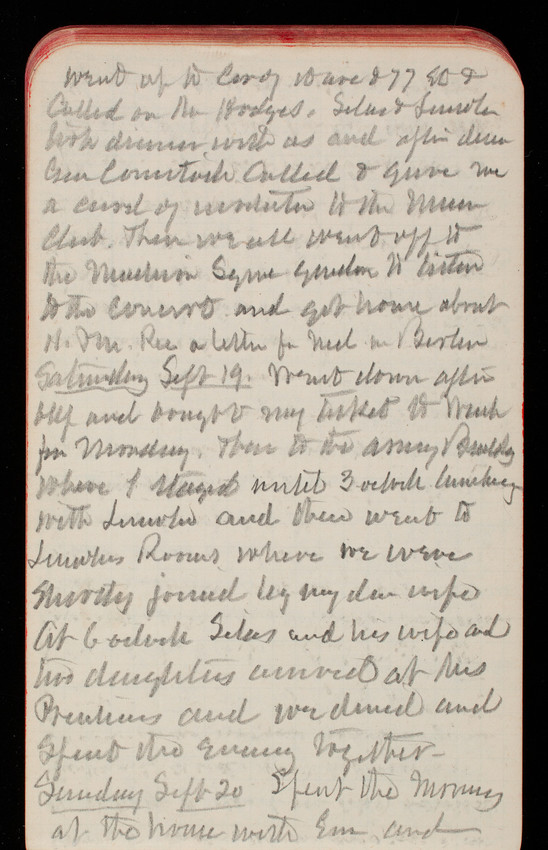 went up to Cor of 10 ave & 77 St &
Called on the Hodges. Silas & Lincoln
took dinner with us and after dinner
Gen Comstock Called & gave me
a card of invitation to the Union
Club. Then we all went off to
the Madison Square garden to listen
to the Concert and got home about
11. P.M. Rec a letter fr Ned in Berlin
Saturday Sept 19. Went down after
bkf and bought my ticket to Wash
for Monday. Then to the army Building
where I stayed until 3 oclock lunching
with Lincoln and then went to
Lincolns Rooms where we were
Shortly joined by my dear wife
At 6 oclock Silas and his wife and
two daughters arrived at his
and we dined and
Spent the Evening together-
Sunday Sept 20 Spent the Morning
at the house with Em and